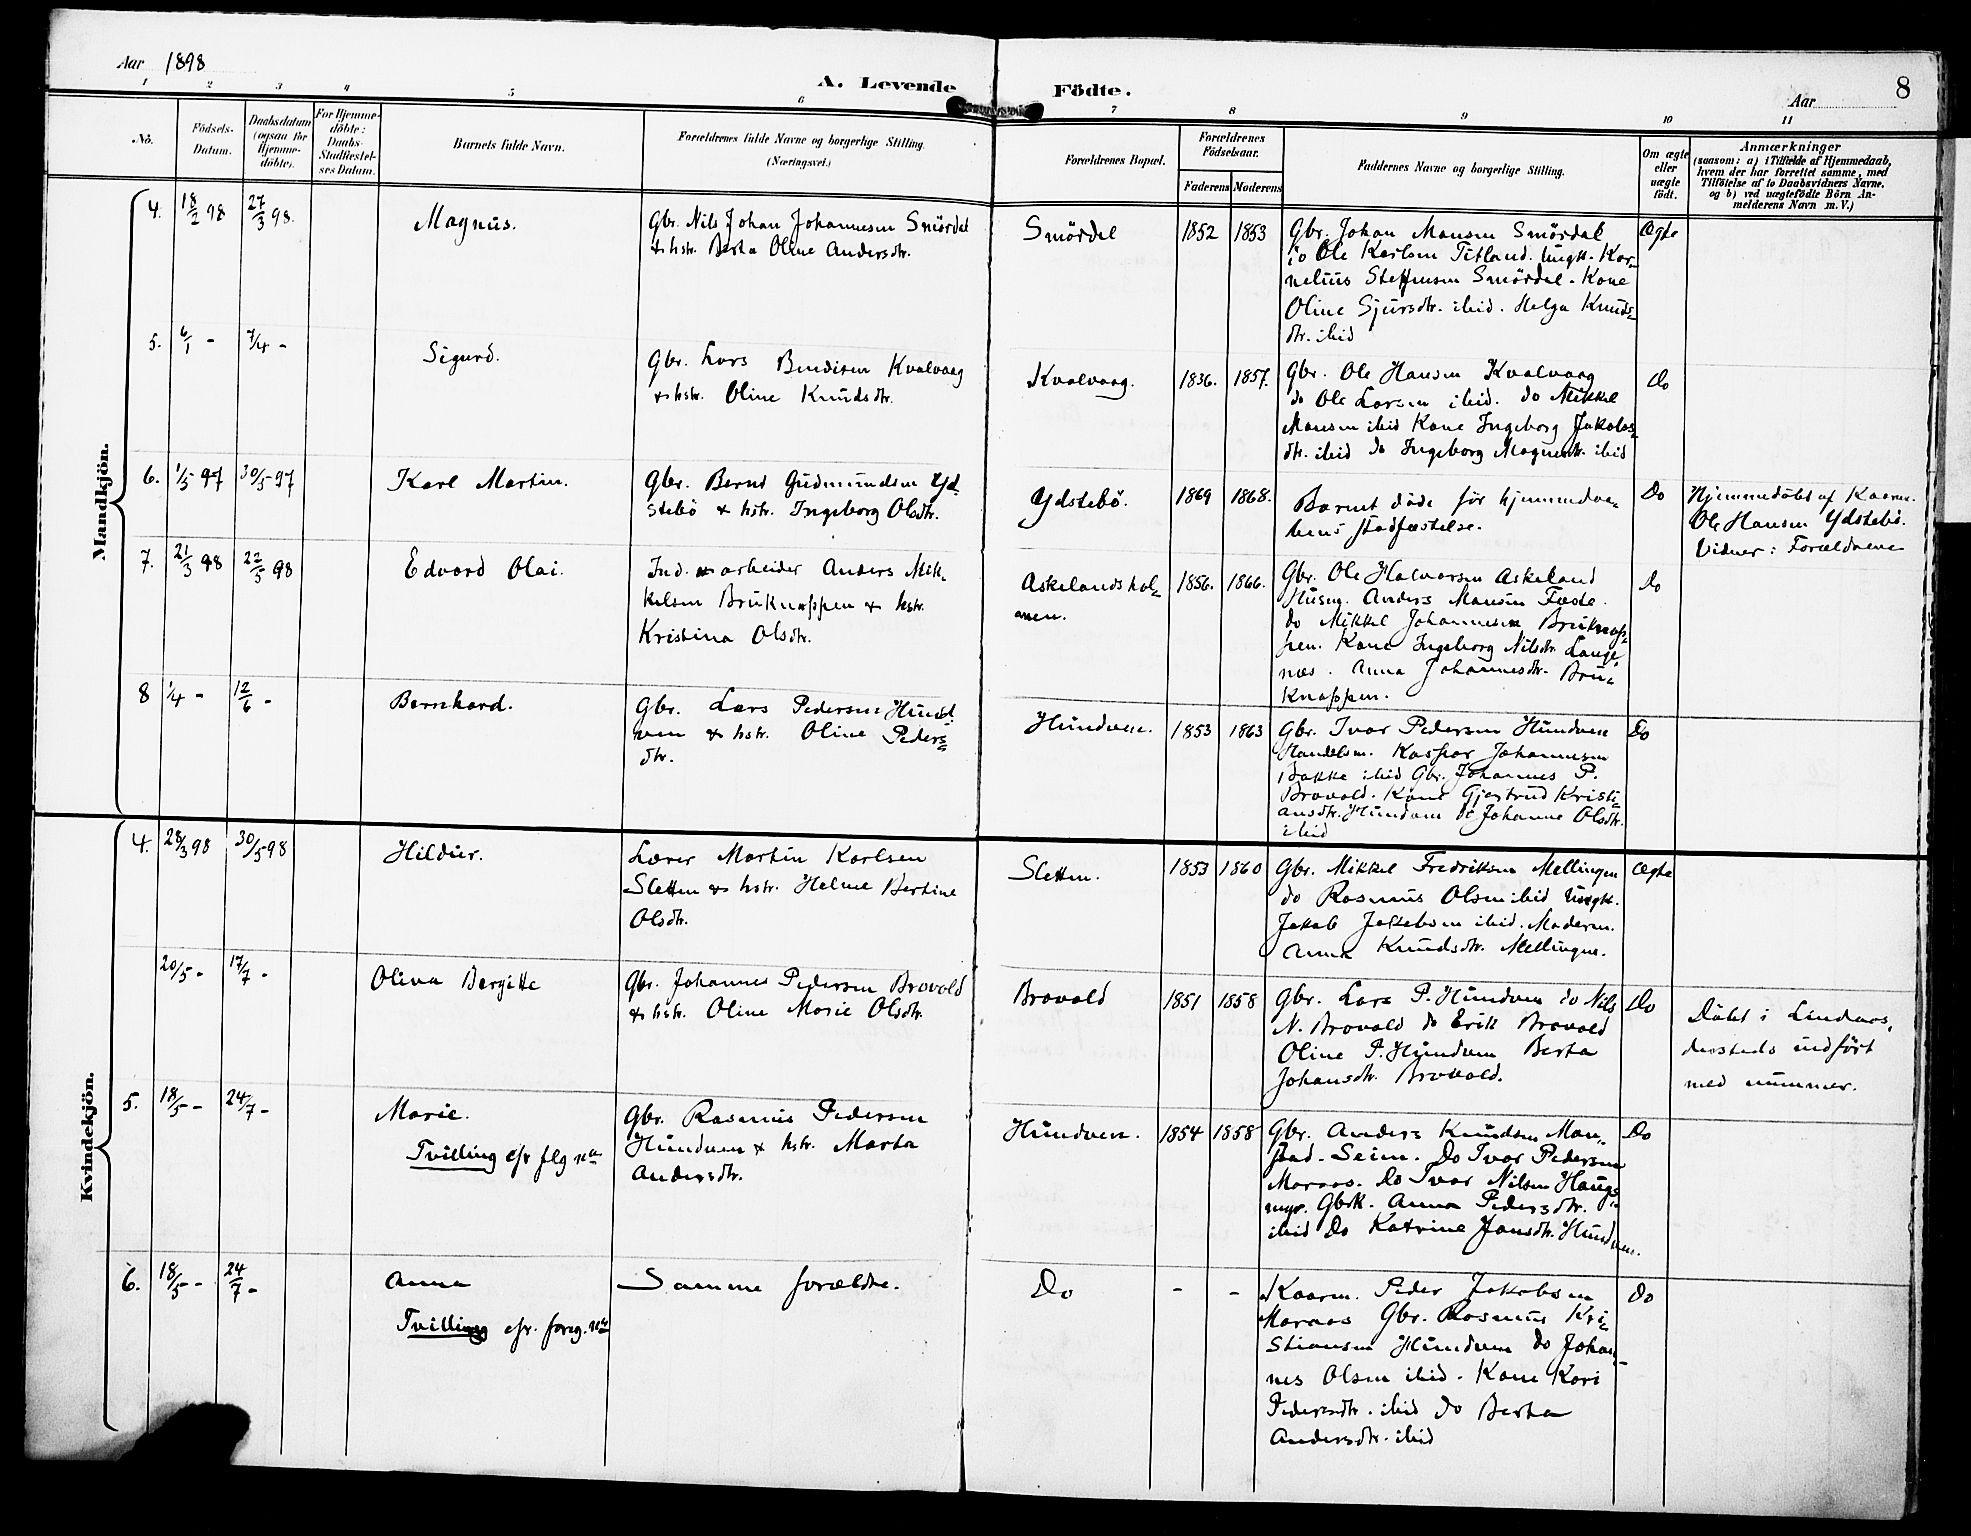 Aar 1898
A. Levende Födte.
Aar 8
1 2 3 4 5 6 7 8 9 10 11
No.
Födsels-
Datum.
Daabsdatum
(ogsaa för
Hjemme-
döbte).
For Hjemme-
döbte:
Daabs-
Stadfæstel-
ses Datum.
Barnets fulde Navn.
Forældrenes fulde Navne og borgerlige Stilling.
(Næringsvei.)
Forældrenes Bopæl.
Forældrenes
Födselsaar.
Faderens Moderens
Faddernes Navne og borgerlige Stilling.
Om ægte
eller
uægte
födt.
Anmærkninger
(saasom: a) i Tilfælde af Hjemmedaab,
hvem der har forrettet samme, med
Tilföielse af to Daabsvidners Navne.
og b) ved uægtefödte Börn An-
melderens Navn m. V.)
Mandkjön.
4. 18/2 98 27/3 98.
Magnus.
Gbr. Nils Johan Johannesen Smördal
& hstr. Berta Oline Andersdtr.
Smördal
1852 1853
Gbr. Johan Monsen Smördal
do Ole Karlsen Titland. Ungk. Kor-
nelius Steffensen Smördal. Kone
Oline Sjursdtr. ibid. Helga Knuds-
dtr. ibid
Ægte
5. 6/1 - 7/4 -
Sigurd.
Gbr. Lars Bendixen Kvalvaag
& hstr. Oline Knudsdtr.
Kvalvaag.
1836. 1857.
Gbr. Ole Hansen Kvalvaag
do Ole Larsen ibid. do Mikkel
Monsen ibid Kone Ingeborg Jakobs-
dtr. ibid do Ingeborg Magnesdtr. ibid
Do
6. 1/5 97 30/5 97
Karl Martin.
Gbr. Bernt Gudmundsen Yd-
stebö & hstr. Ingeborg Olsdtr.
Ydstebö.
1869 1868.
Barnet döde för hjemmedaa-
bens stadfæstelse.
Do
Hjemmedöbt af Kaarm.
Ole Hansen Ydstebö.
Vidner: Forældrene
7. 21/3 98 22/5 98
Edvard Olai.
Ind. arbeider Anders Mik-
kelsen Bruknappen & hstr.
Kristina Olsdtr.
Askelandshol-
men.
1856. 1866.
Gbr. Ole Halvorsen Askeland
Husm. Anders Monsen Fæste.
do Mikkel Johannesen Bruknap-
pen. Kone Ingeborg Nilsdtr. Lange-
næs. Anna Johannesdtr. Bru-
knappen.
Do
8 1/4 - 12/6 -
Bernhard.
Gbr. Lars Pedersen Hund-
ven & hstr. Oline Peders-
dtr.
Hundven.
1853 1863
Gbr. Ivar Pedersen Hundven
Handelsm. Kaspar Johannesen
Bakke ibid Gbr. Johannes P.
Brovold. Kone Gjertrud Kristi-
ansdtr. Hundven do Johanne Olsdtr.
ibid
Do
Kvindekjön.
4. 28/3 98 30/5 98
Hildur.
Lærer Martin Karlsen
Sletten & hstr. Helene Bertine
Olsdtr.
Sletten.
1853 1860
Gbr. Mikkel Fredriksen Mellingen
do Rasmus Olsen ibid Ungk.
Jakob Jakobsen ibid. Moderen.
Anna Knudsdtr. Mellingen.
Ægte
20/5 - 17/7 -
Olina Bergitte
Gbr. Johannes Pedersen Brovold
& hstr. Oline Marie Olsdtr.
Brovold
1851 1858
Gbr. Lars P. Hundven do Nils
N. Brovold do Erik Brovold
Oline P. Hundven Berta
Johansdtr. Brovold.
Do
Döbt i Lindaas,
dersteds indfört
med nummer.
5. 18/5 - 24/7 -
Marie.
Tvilling cfr flg nr
Gbr. Rasmus Pedersen
Hundven & hstr. Marta
Andersdtr.
Hundven.
1854 1858
Gbr. Anders Knudsen Mon-
stad. Seim. Do Ivar Pedersen
Maraas. Do Ivar Nilsen Haugs-
myr. Gbrk. Anna Pedersdtr.
ibid Do Katrine Jonsdtr. Hundven.
Do
6. 18/5 - 24/7 -
Anna
Tvilling cfr. foreg. nr
Samme forældre.
Do
- -
Kaarm. Peder Jakobsen
Maraas Gbr. Rasmus Kri-
stiansen Hundven do Johan-
nes Olsen ibid. Kone Kari
Pedersdtr. ibid do Berta
Andersdtr. ibid
Do